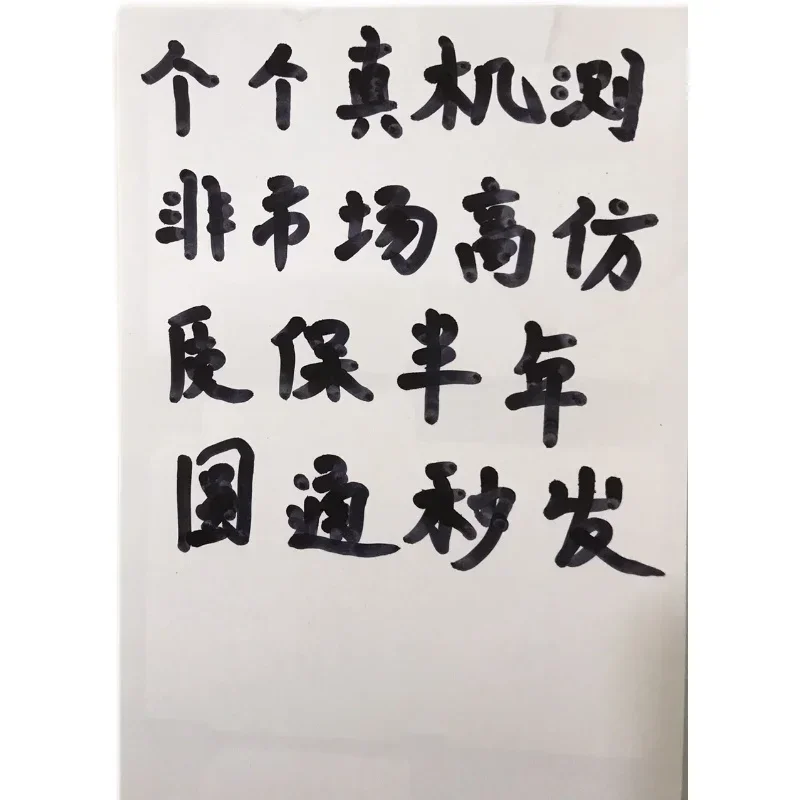 个个真机测
非市场高仿
质保半年
圆通秒发